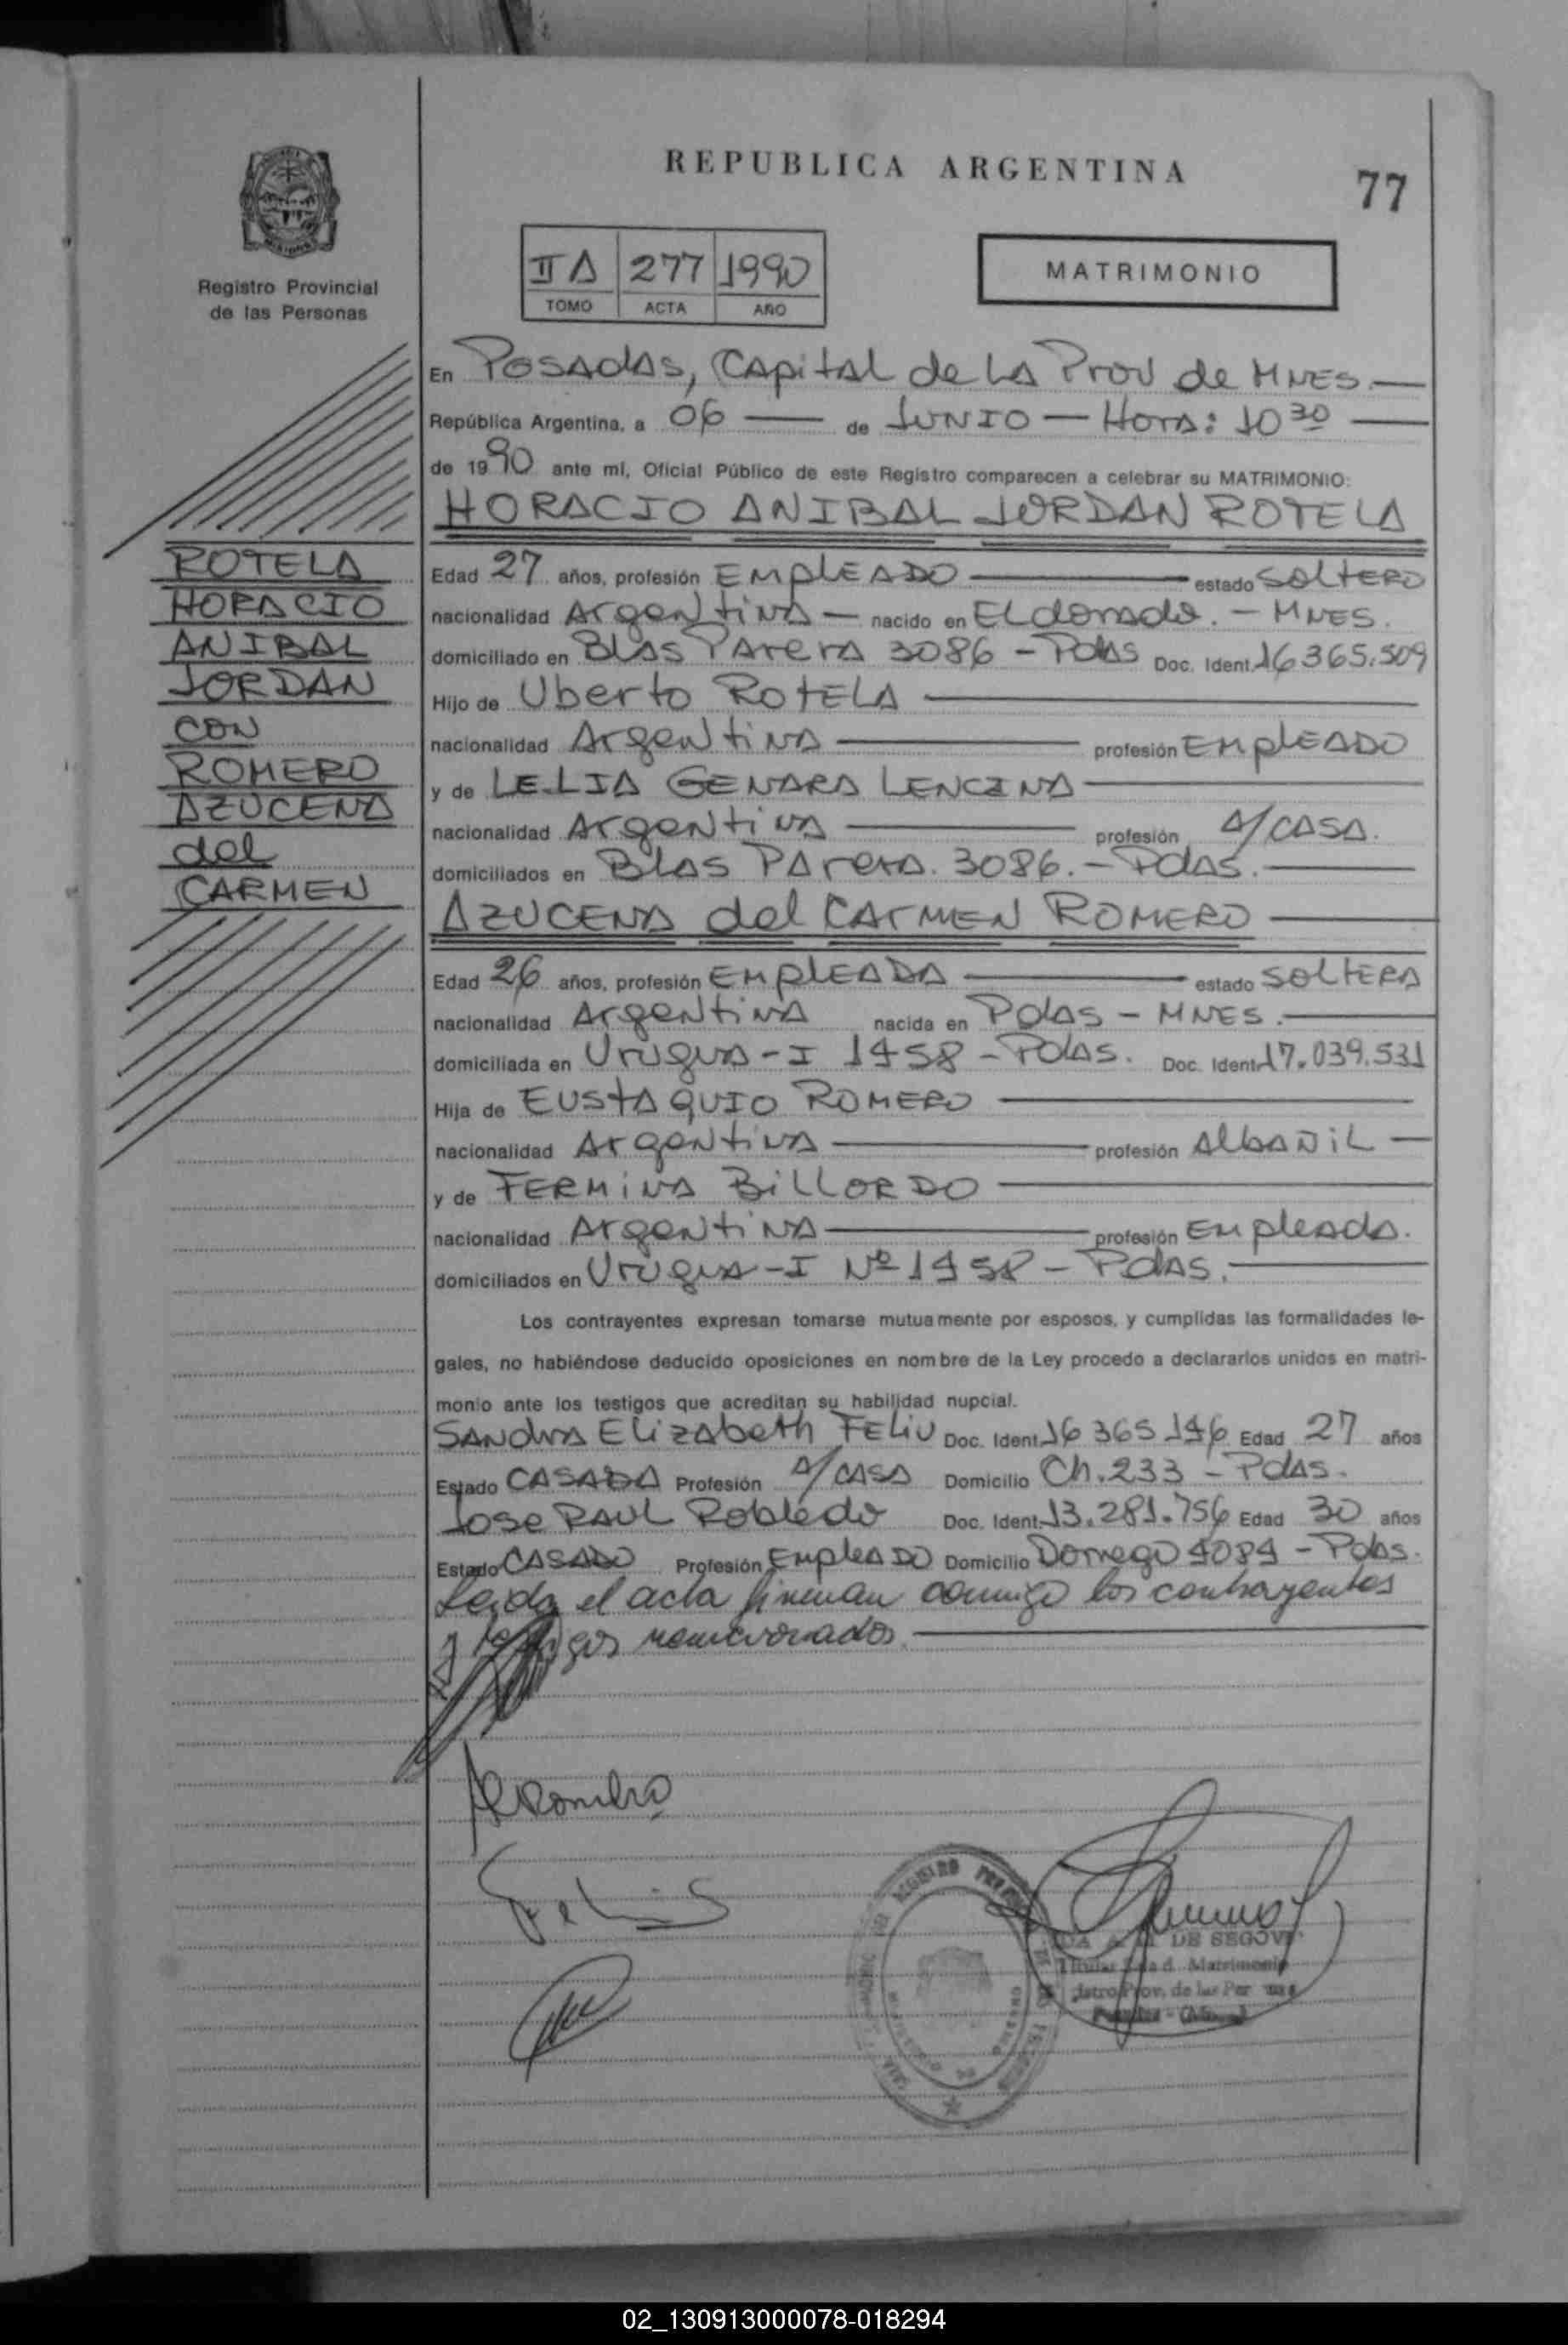 REPUBLICA ARGENTINA
77
Registro Provincial
de las Personas
IIA 277 1990
TOMO ACTA AÑO
MATRIMONIO
En Posadas, Capital de La Prov de Mnes.
República Argentina, a 06 de Junio — Hora: 10 30
de 1990 ante mí, Oficial Público de este Registro comparecen a celebrar su MATRIMONIO:
HORACIO ANIBAL JORDAN ROTELA
ROTELA
HORACIO
ANIBAL
JORDAN
CON
ROMERO
AZUCENA
del
CARMEN
Edad 27 años, profesión EMPLEADO estado SOLTERO
nacionalidad Argentina — nacido en Eldorado. - MNES.
domiciliado en Blas Parera 3086 - Pdas Doc. Ident. 16365.509
Hijo de Uberto ROTELA
nacionalidad Argentina profesión EMPLEADO
y de LELIA GENARA LENCINA
nacionalidad Argentina profesión A/CASA.
domiciliados en Blas Parera. 3086. - Pdas.
AZUCENA del CARMEN ROMERO
Edad 26 años, profesión EMPLEADA estado SOLTERA
nacionalidad Argentina nacida en Pdas - MNES.
domiciliada en Urugua-I 1458 - Pdas. Doc. Ident. 17.039.531
Hija de EUSTAQUIO ROMERO
nacionalidad Argentina profesión AlbAÑiL
y de FERMINA BILLORDO
nacionalidad Argentina profesión Empleada.
domiciliados en Urugua-I Nº 1458 - Pdas.
Los contrayentes expresan tomarse mutuamente por esposos, y cumplidas las formalidades le-
gales, no habiéndose deducido oposiciones en nombre de la Ley procedo a declararlos unidos en matri-
monio ante los testigos que acreditan su habilidad nupcial.
Sandra Elizabeth FELIU Doc. Ident. 16 365 146 Edad 27 años
Estado CASADA Profesión A/CASA Domicilio Ch. 233 - Pdas.
Jose RAUL Robledo Doc. Ident. 13.281.756 Edad 30 años
Estado CASADO Profesión EMPLEADO Domicilio Dorrego 4084 - Pdas.
Leida el acta firman conmigo los contrayentes
y testigos mencionados.
DE SEGOV
Titular Matrimonio
Prov. de las Per
02_130913000078-018294